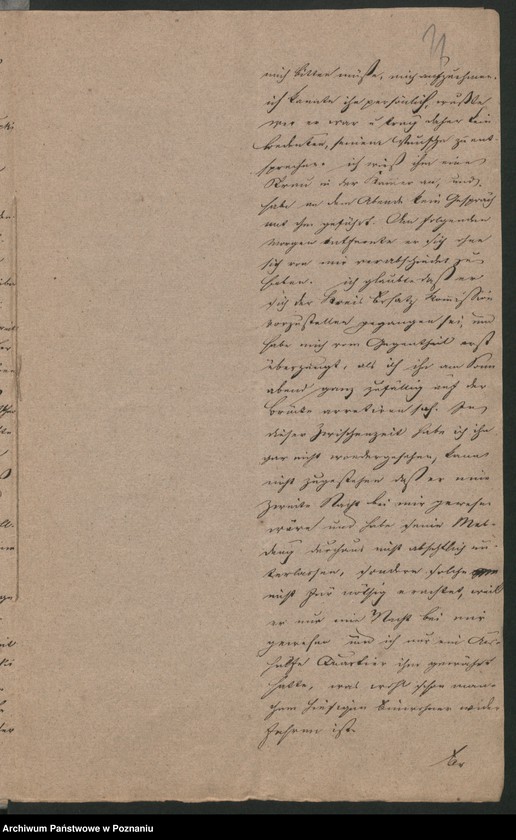 mich bitten müsse, mich aufzunehmen.
ich kannte ihn persönlich, wußte
wer er war u trug daher kein
Bedenken, seinem Wunsche zu ent-
sprechen. ich wieß ihm eine
in der Kammer an, und
habe an dem Abende kein Gespräch
mit ihm geführt. Am folgenden
Morgen entfernte er sich ohne
sich von mir verabschiedet zu
haben. ich glaubte daß er
sich der Kreis Ersatz Commission
vorzustellen gegangen sei, und
habe mich vom Gegentheil erst
überzeugt, als ich ihn am Sonn
abend ganz zufällig auf der
Brücke arretiren sah. In
dieser Zwischenzeit habe ich ihn
gar nicht wiedergesehen, kann
nicht zugestehen daß er eine
zweite Nacht bei mir gewesen
wäre und habe seine Mel-
dung durchaus nicht absichtlich un-
terlassen, sondern solche
nicht für nöthig erachtet, weil
er nur eine Nacht bei mir
gewesen und ich nur ein
Quartier ihm gewährt
habe, was wohl schon man-
chem hiesigen Einwohner wider
fahren ist.
Der
Archiwum Państwowe w Poznaniu